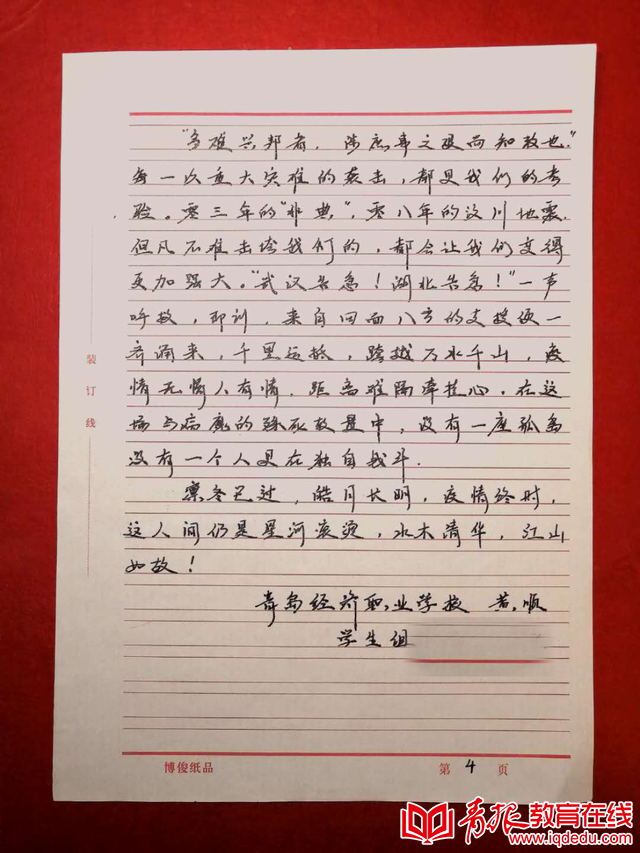 “多难兴邦者，涉庶事之艰而知敬也”
每一次重大灾难的袭击，都是我们的考
验。零三年的“非典”，零八年的汶川地震，
但凡不难击垮我们的，都会让我们变得
更加强大。“武汉告急！湖北告急！”一声
呼救，即刻，来自四面八方的支援便一
齐涌来，千里运抵，跨越万水千山，疫
情无情人有情，距离难隔牵挂心，在这
场与病魔的殊死较量中，没有一座孤岛
没有一个人是在独自战斗.
凛冬已过，皓月长明，疫情终时，
这人间仍是星河滚烫，水木清华，江山
如故！
青岛经济职业学校 黄顺
学生组
装订线
博俊纸品 第 4 页
青报教育在线
www.iqdedu.com